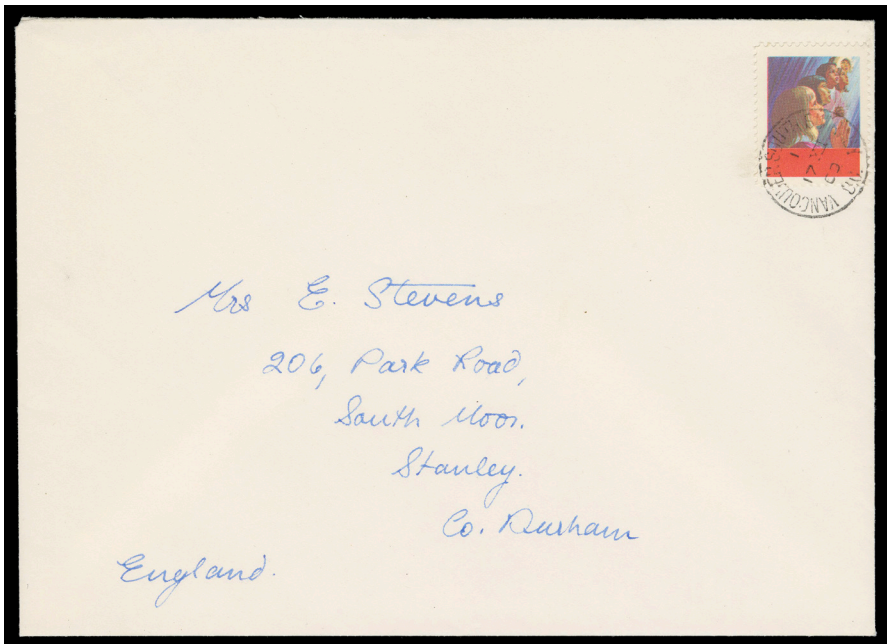 VANCOUVER
Mrs E. Stevens
206, Park Road,
South Moor.
Stanley.
Co. Durham
England.